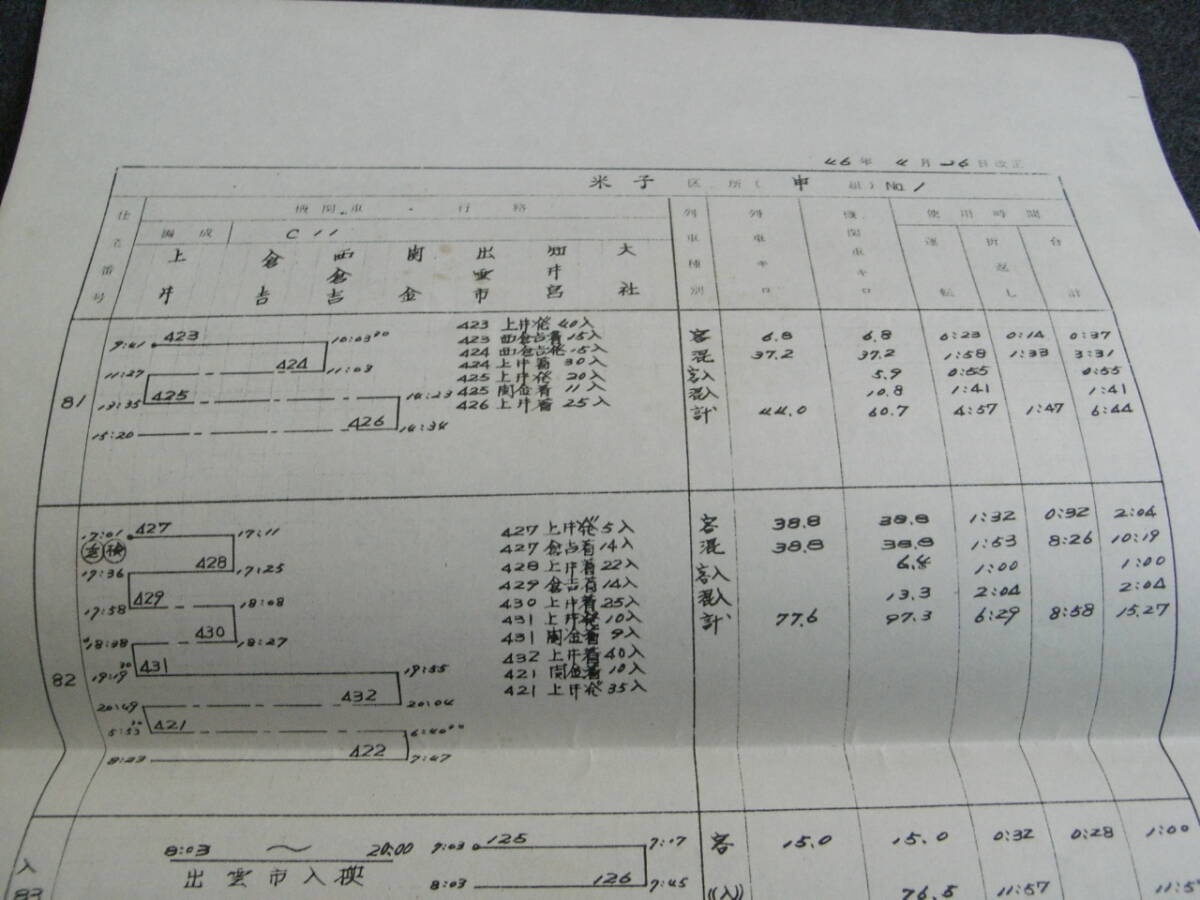 46年 4月26日改正
米子 区所(申 組) No.1
仕 機関車・行路 列 列 機 使用時間
業 編成 C11 車 車 関 運 折 合
番 種 キ 車 返
号 別 ロ キ 転 し 計
ロ
上井 倉吉 西倉吉 関金 出雲市 知井宮 大社
81
9:41 423 10:03³⁰
11:27 424 11:03
13:35 425 14:23
15:20 426 14:34
423 上井発 40入
423 西倉吉着 15入
424 西倉吉発 15入
424 上井着 30入
425 上井発 20入
425 関金着 11入
426 上井着 25入
客 6.8 6.8 0:23 0:14 0:37
混 37.2 37.2 1:58 1:33 3:31
客入 5.9 0:55 0:55
混入 10.8 1:41 1:41
計 44.0 60.7 4:57 1:47 6:44
82
17:01 427 17:11
428 17:25
429 18:08
17:58
430 18:27
431 19:55
19:19
20:49 432 20:04
421 6:40⁰⁰
8:23 422 7:47
427 上井発 5入
427 倉吉着 14入
428 上井着 22入
429 倉吉着 14入
430 上井着 25入
431 上井発 10入
431 関金着 9入
432 上井着 40入
421 関金着 10入
421 上井発 35入
客 38.8 38.8 1:32 0:32 2:04
混 38.8 38.8 1:53 8:26 10:19
客入 6.4 1:00 1:00
混入 13.3 2:04 2:04
計 77.6 97.3 6:29 8:58 15.27
入
83
8:03 〜 20:00
出雲市入換
7:03 125 7:17
8:03 126 7:45
客 15.0 15.0 0:32 0:28 1:00
((入)) 76.5 11:57